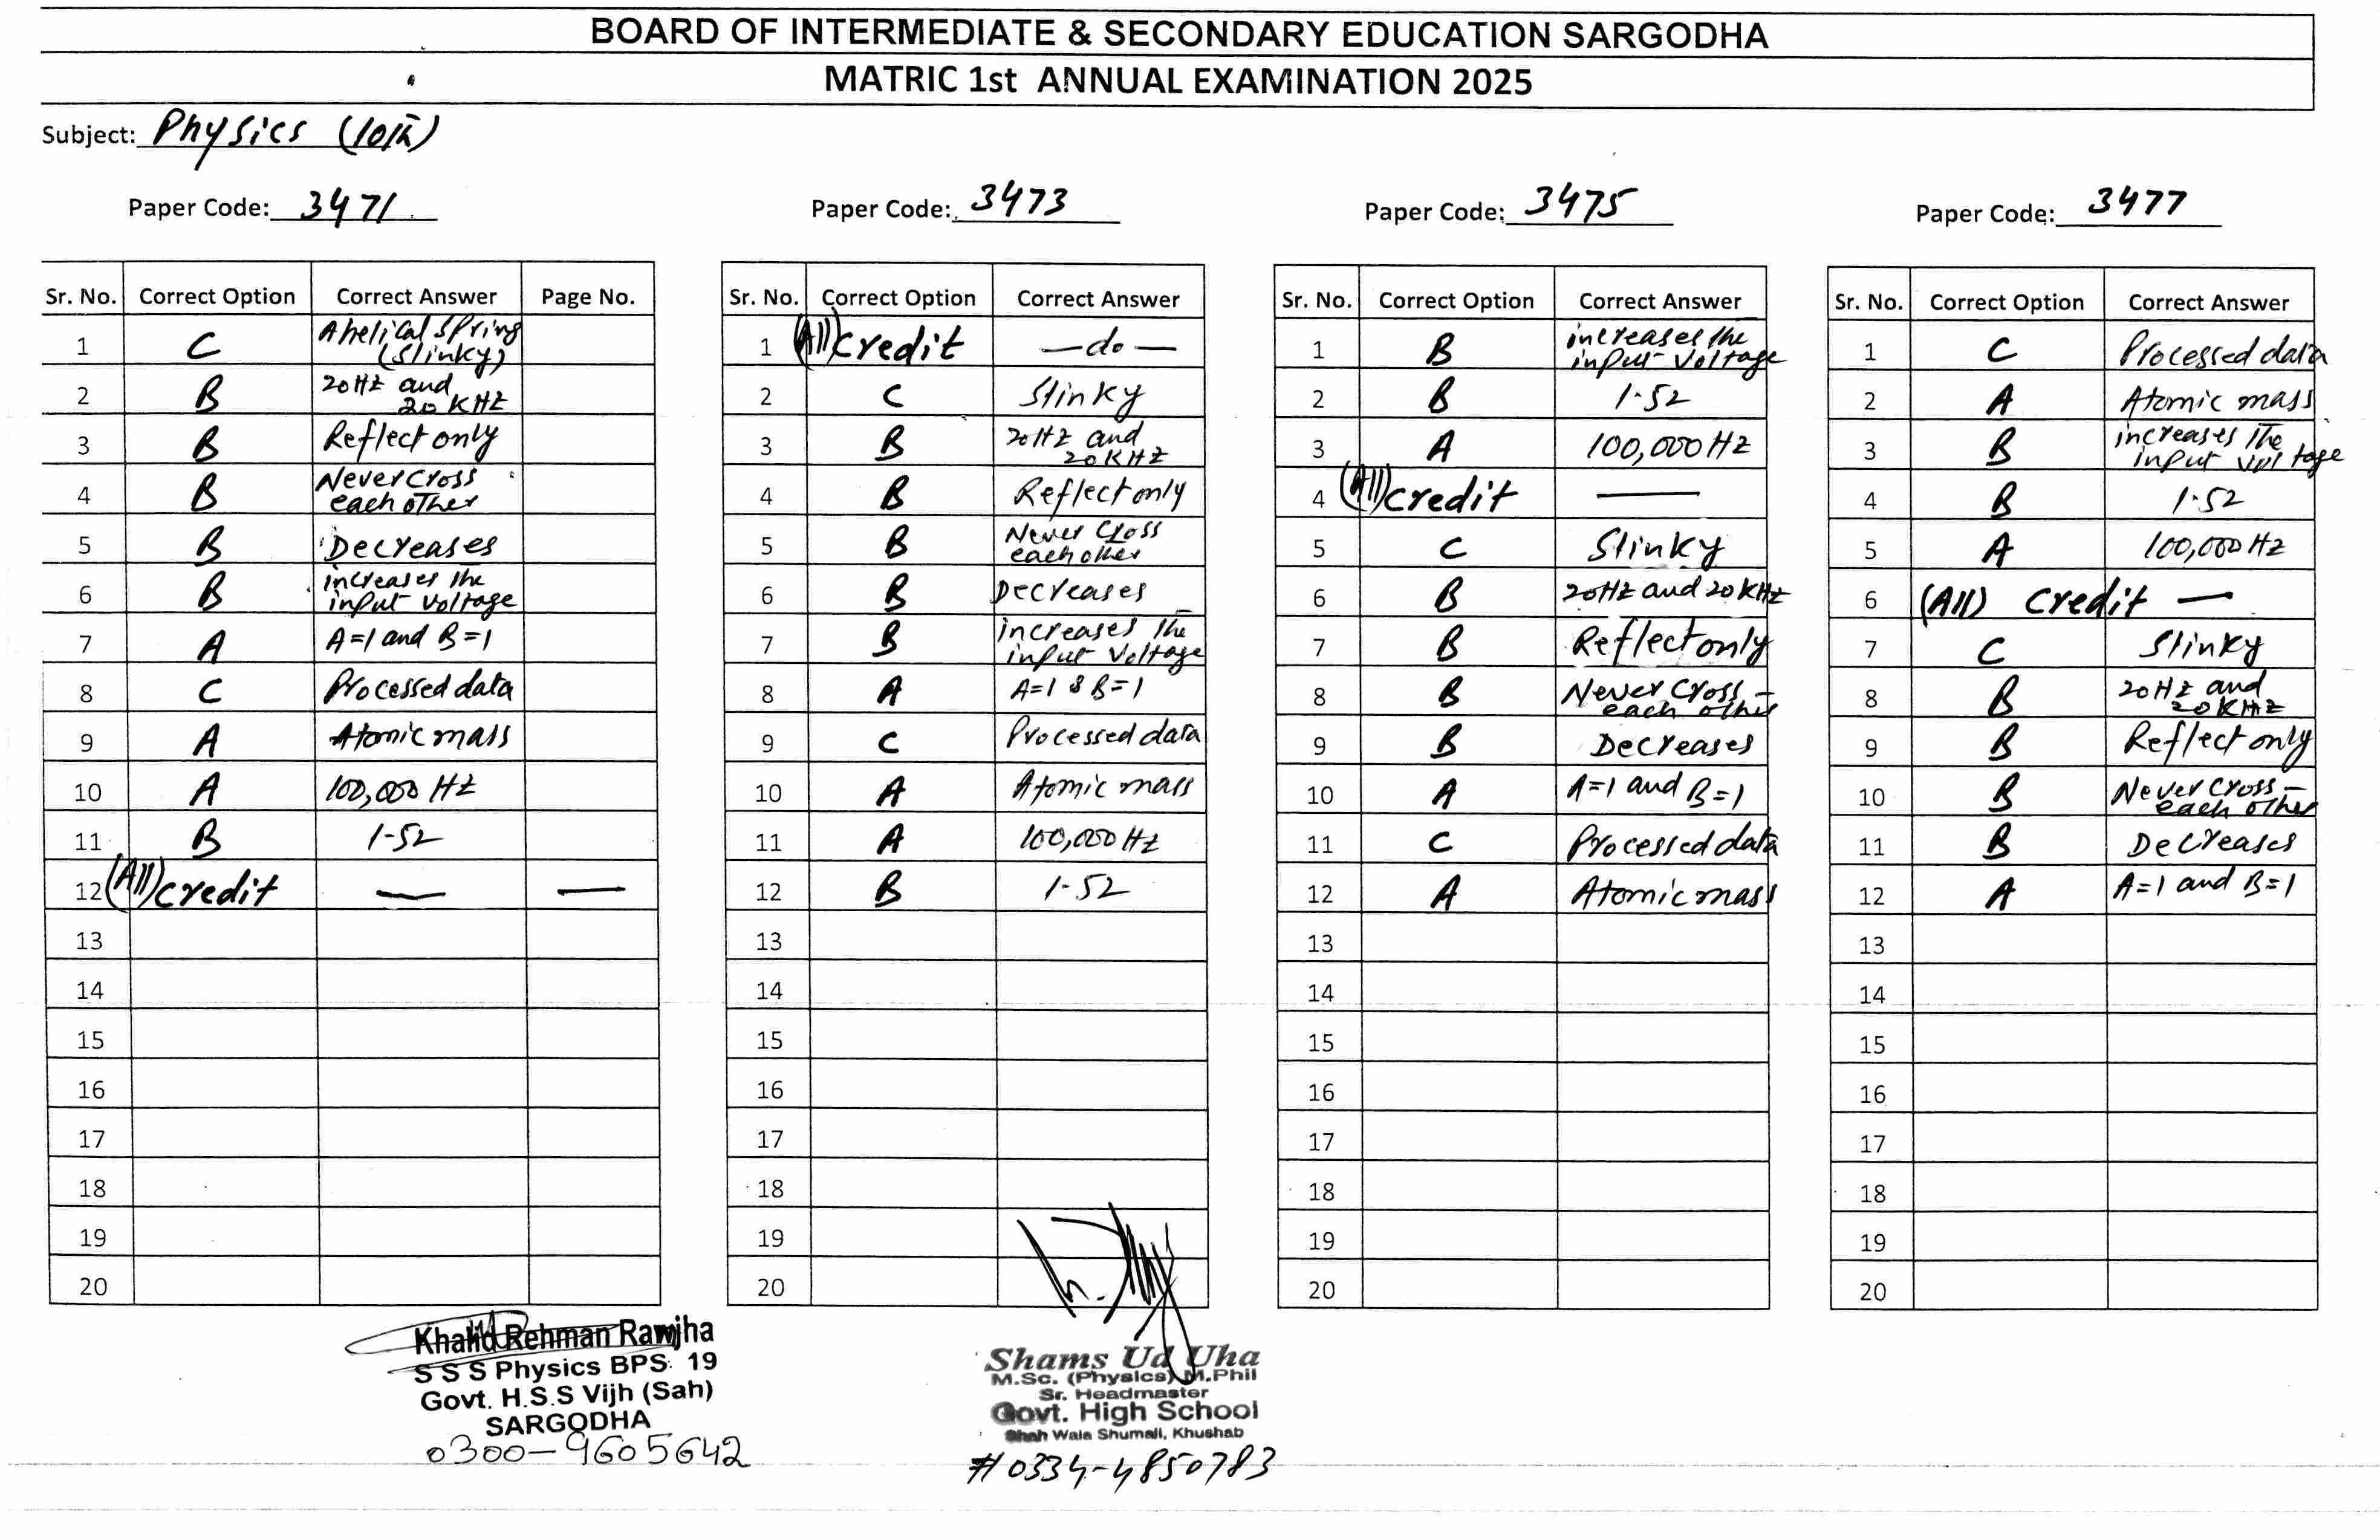 BOARD OF INTERMEDIATE & SECONDARY EDUCATION SARGODHA
MATRIC 1st ANNUAL EXAMINATION 2025
Subject: Physics (10th)
Paper Code: 3471
Sr. No. Correct Option Correct Answer Page No.
1 C A helical Spring (Slinky)
2 B 20Hz and 20 KHz
3 B Reflect only
4 B Never Cross each other
5 B Decreases
6 B increases the input Voltage
7 A A=1 and B=1
8 C Processed data
9 A Atomic mass
10 A 100,000 Hz
11 B 1.52
12 (All) Credit — —
13
14
15
16
17
18
19
20
Paper Code: 3473
Sr. No. Correct Option Correct Answer
1 (All) Credit —do—
2 C Slinky
3 B 20Hz and 20KHz
4 B Reflect only
5 B Never Cross each other
6 B Decreases
7 B increases the input Voltage
8 A A=1 & B=1
9 C Processed data
10 A Atomic mass
11 A 100,000 Hz
12 B 1.52
13
14
15
16
17
18
19
20
Paper Code: 3475
Sr. No. Correct Option Correct Answer
1 B increases the input Voltage
2 B 1.52
3 A 100,000 Hz
4 (All) Credit —
5 C Slinky
6 B 20Hz and 20 KHz
7 B Reflect only
8 B Never Cross each other
9 B Decreases
10 A A=1 and B=1
11 C Processed data
12 A Atomic mass
13
14
15
16
17
18
19
20
Paper Code: 3477
Sr. No. Correct Option Correct Answer
1 C Processed data
2 A Atomic mass
3 B increases the input voltage
4 B 1.52
5 A 100,000 Hz
6 (All) Credit —
7 C Slinky
8 B 20Hz and 20KHz
9 B Reflect only
10 B Never Cross each other
11 B Decreases
12 A A=1 and B=1
13
14
15
16
17
18
19
20
Khalid Rehman Ranjha
S S S Physics BPS. 19
Govt. H.S.S Vijh (Sah)
SARGODHA
0300-9605642
Shams Ud Uha
M.Sc. (Physics) M.Phil
Sr. Headmaster
Govt. High School
Shah Wala Shumali, Khushab
# 0334-4850783